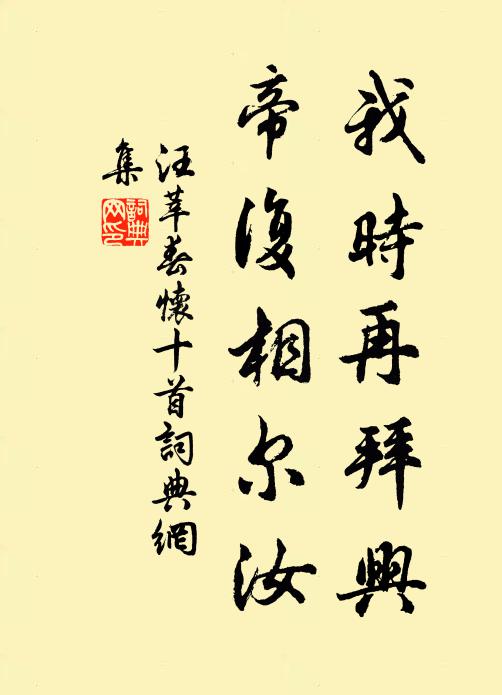 我時再拜興
帝復相尔汝
汪莘春懷十首詞典網
集
詞典
网印